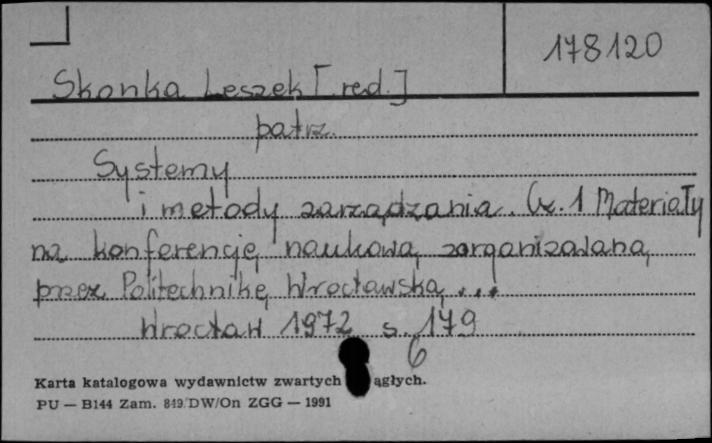 178120
Skonka Leszek [red.]
patrz
Systemy
i metody zarządzania. Cz. 1 Materiały
na konferencję naukową zorganizowaną
przez Politechnikę Wrocławską ...
Wrocław 1972 s. 179
6
Karta katalogowa wydawnictw zwartych ągłych.
PU — B144 Zam. 849/DW/On ZGG — 1991